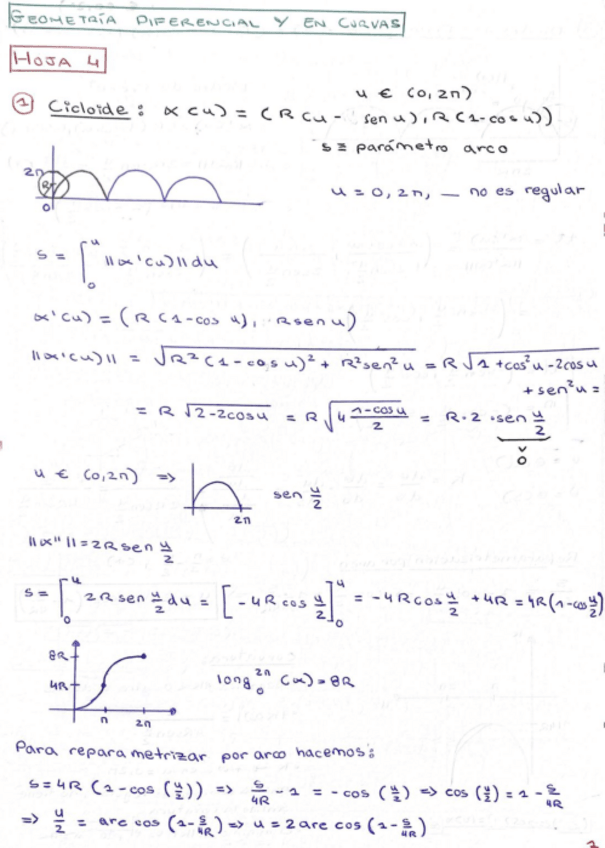 GEOMETRÍA DIFERENCIAL Y EN CURVAS
HOJA 4
① Cicloide: α(u) = (R(u - sen u), R(1-cos u))
u ∈ (0, 2π)
s ≡ parámetro arco
2π
R
0
u = 0, 2π, — no es regular
s = ∫₀ᵘ ||α'(u)|| du
α'(u) = (R(1-cos u), R sen u)
||α'(u)|| = √(R²(1-cos u)² + R² sen² u) = R√(1 + cos²u - 2cos u
+ sen²u =
= R √(2-2cos u) = R √(4 (1-cos u)/2) = R·2·sen u/2
∨
0
u ∈ (0, 2π) => sen u/2
2π
||α''|| = 2R sen u/2
s = ∫₀ᵘ 2R sen u/2 du = [-4R cos u/2]₀ᵘ = -4R cos u/2 + 4R = 4R(1-cos u/2)
8R
4R
π 2π
long₀²ᵖ (α) = 8R
Para reparametrizar por arco hacemos:
s = 4R (1-cos (u/2)) => s/4R - 1 = -cos (u/2) => cos (u/2) = 1 - s/4R
=> u/2 = arc cos (1- s/4R) => u = 2 arc cos (1- s/4R)